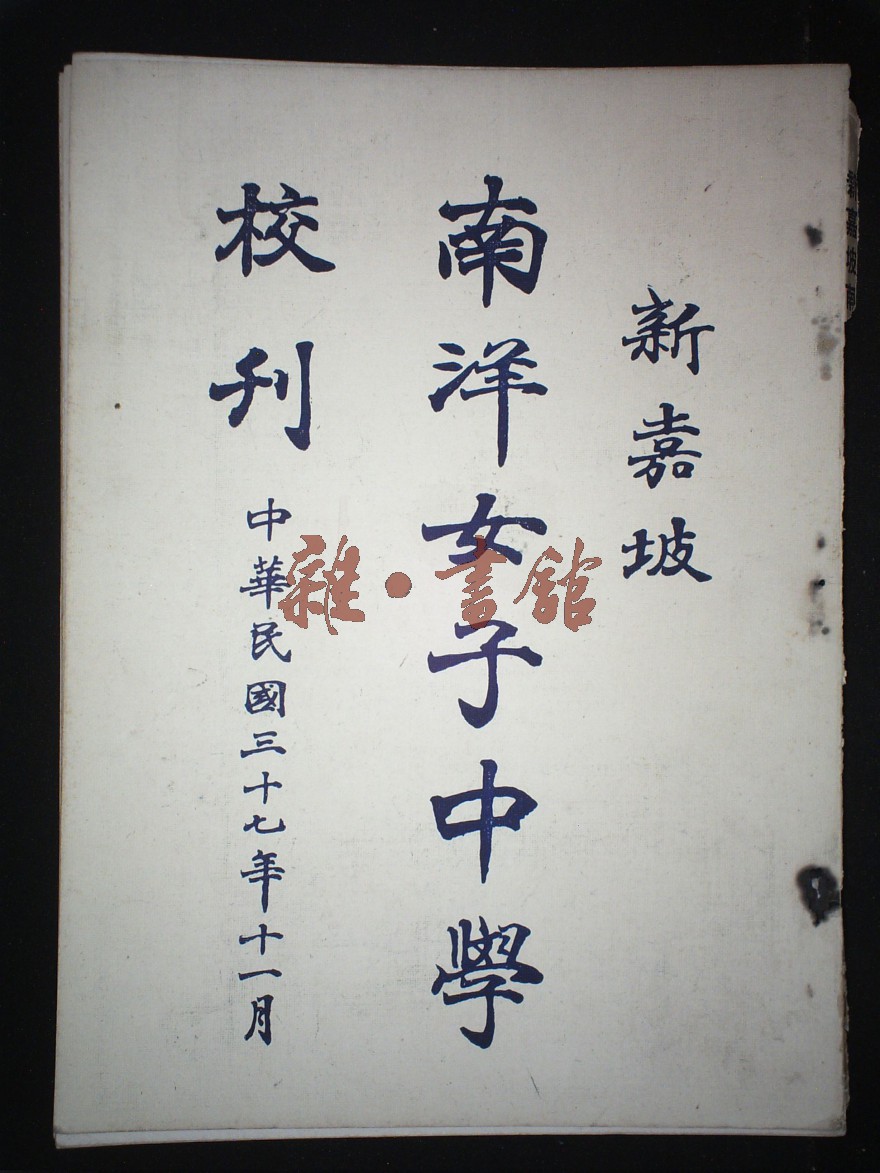 新嘉坡
南洋女子中學
校刊
中華民國三十七年十一月
雜·書館
新嘉坡南